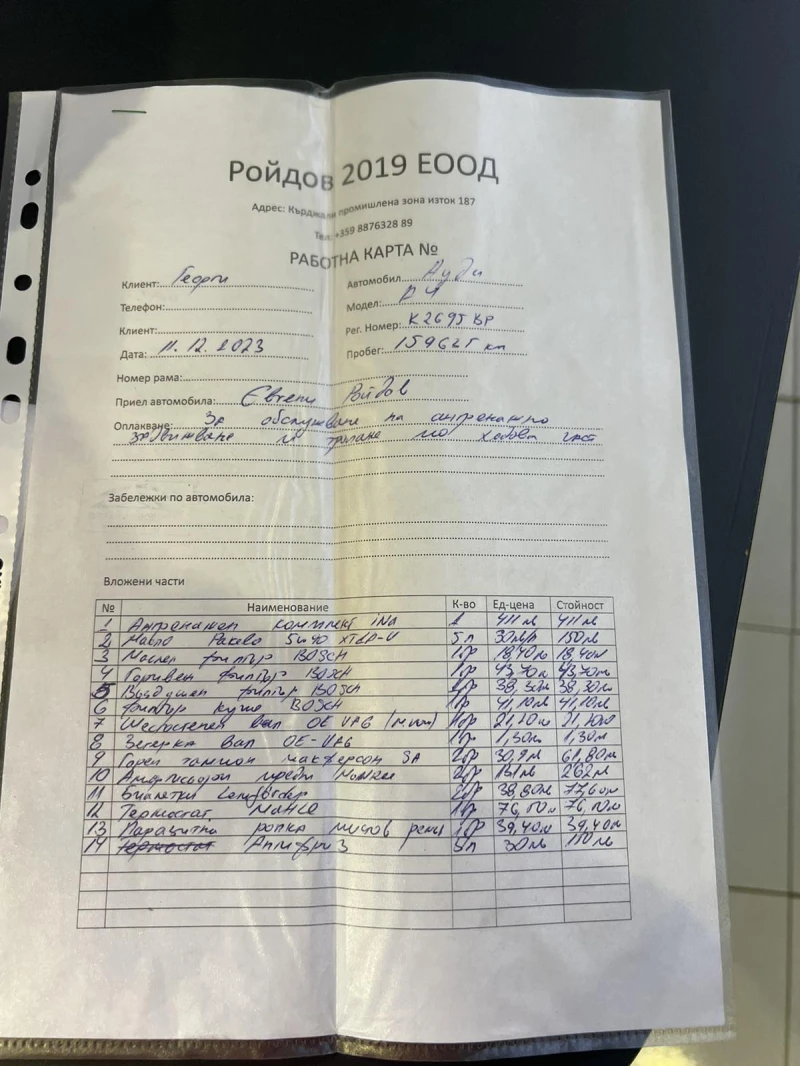 Ройдов 2019 ЕООД
Адрес: Кърджали промишлена зона изток 187
Тел: +359 8876328 89
РАБОТНА КАРТА №
Клиент: Георги Автомобил Ауди
Телефон: Модел: А4
Клиент: Рег. Номер: К2695ВР
Дата: 11.12.2023 Пробег: 159625 км
Номер рама:
Приел автомобила: Євгени Ройдов
Оплакване: За обслужване на ангренажно
задвижване и тропане по ходова част
Забележки по автомобила:
Вложени части
№ Наименование К-во Ед-цена Стойност
1 Ангренажен комплект iNA 1 411лв 411лв
2 Масло 5w40 5л 30лв 150лв
3 Маслен филтър BOSCH 1бр 18,40лв 18,40лв
4 Горивен филтър BOSCH 1бр 43,70лв 43,70лв
5 Въздушен филтър BOSCH 38,30лв 38,30лв
6 Филтър купе BOSCH 1бр 41,10лв 41,10лв
7 Шестостепен вал OE VAG 1бр
8 Зегерка вал OE-VAG 1бр 1,30лв 1,30лв
9 Горен тампон макферсон SA 2бр 30,9лв 61,80лв
10 Амфисьори предни Monroe 2бр 131лв 262лв
11 Биалетки Lemförder 2бр 38,80лв 77,60лв
12 Термостат 1бр
13 Паразитна ролка пистов ремък 1бр 39,40лв 39,40лв
14 Антифриз 5л 30лв